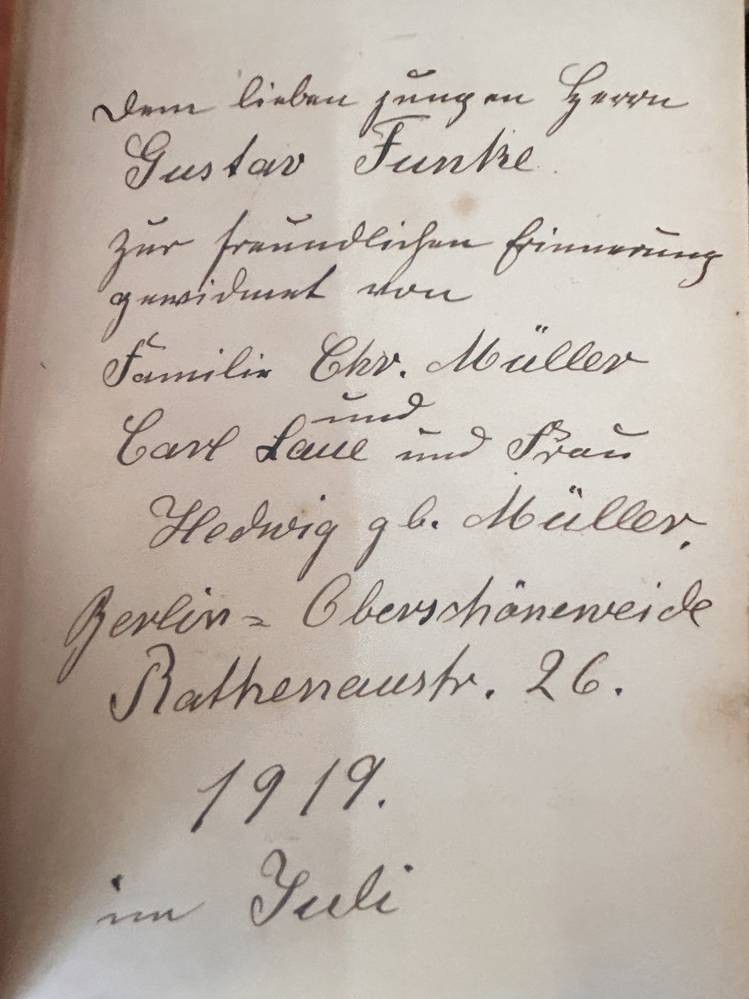 Dem lieben jungen Herrn
Gustav Funke
zur freundlichen Erinnerung
gewidmet von
Familie Chr. Müller
und
Carl Laue und Frau
Hedwig gb. Müller,
Berlin = Oberschöneweide
Rathenaustr. 26.
1919.
im Juli